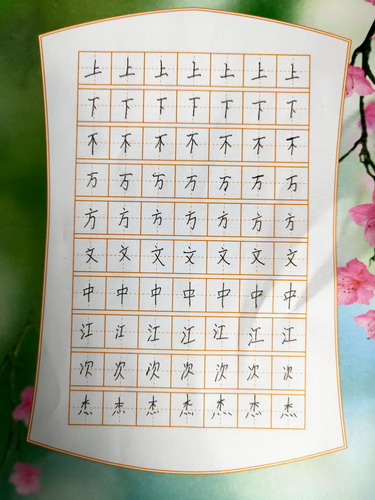 上上上上上上上
下下下下下下下
不不不不不不不
万万万万万万万
方方方方方方方
文文文文文文文
中中中中中中中
江江江江江江江
次次次次次次次
杰杰杰杰杰杰杰